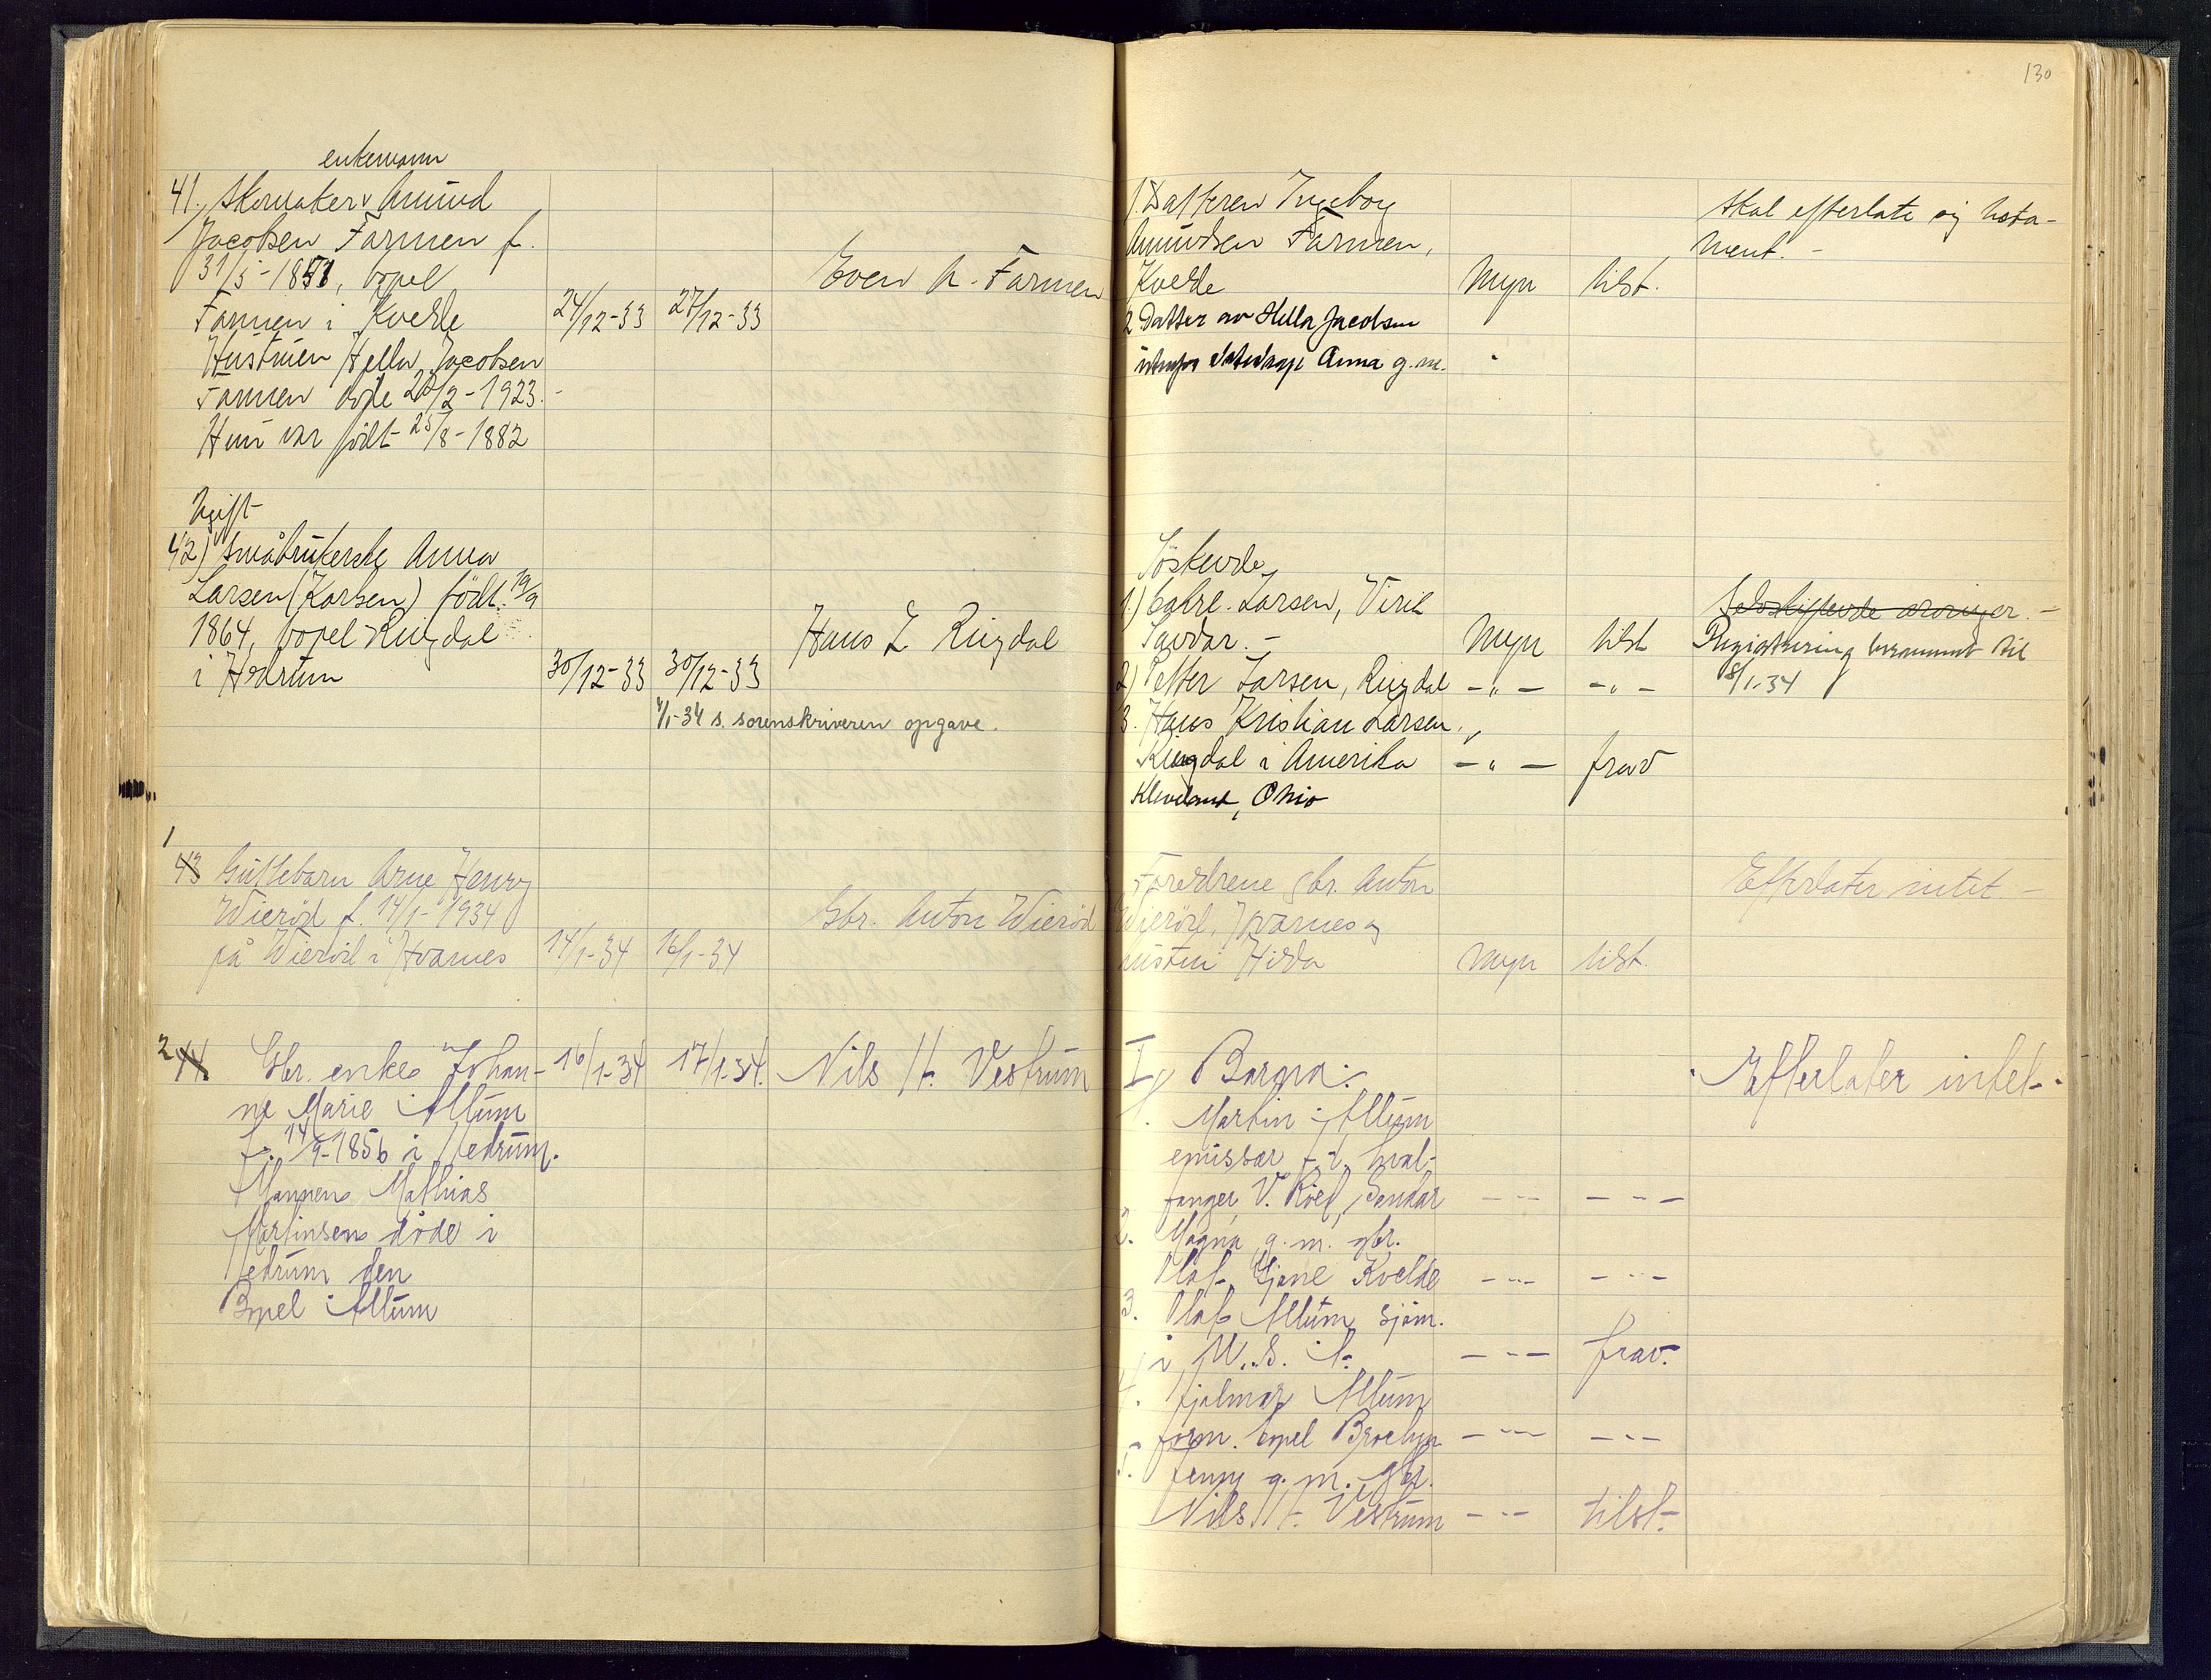 130
enkemann
41. Skomaker Amund
Jacobsen Farmen f.
31/5-1851, bopel
Farmen i Kvelle
Hustruen Hella Jacobsen
Farmen døde 20/2-1923.-
Hun var født 25/8-1882
24/12-33
27/12-33
Even A. Farmen
1. Datteren Ingeborg
Amundsen Farmen,
Kvelde
Myn
tilst.
2 Datter av Hella Jacobsen
utenfor ekteskap Anna g.m.
Skal efterlate sig testa-
ment.-
Ugift
42) Småbrukerske Anna
Larsen (Karlsen) født 19/9
1864, bopel Ringdal
i Hedrum
30/12-33
30/12-33
Hans L. Ringdal
4/1-34 s. sorenskriveren opgave.
Söskende
1.) Larsen,
Sandar.-
Myn
tilst
2) Petter Larsen, Ringdal -"- -"-
3. Hans Kristian Larsen
Ringdal i Amerika -"- frav
Kleveland, Ohio
Selvskiftende arvinger.-
Registrering berammet til
8/1-34
1
43 Guttebarn Arne Henry
Wieröd f. 14/1-1934
på Wieröd i Hvarnes
14/1-34
16/1-34
Gbr. Anton Wieröd
Foreldrene gbr. Anton
Wieröd, Hvarnes og
hustru Hilda
Myn
tilst.
Efterlater intet.-
2
44. Gbr. enke Johan-
ne Marie Allum
f. 14/9-1856 i Hedrum.
Mannen Mathias
Martinsen døde i
Hedrum den
Bopel Allum
16/1-34
17/1-34.
Nils H. Vestrum
I, Barna:
1. Martin Allum
emissær f.t. hval-
fanger, V. Röed, Sandar -"- -"-
2. Magna g.m. gbr.
Olaf Gjone Kvelde -"- -"-
3. Olaf Allum sjøm.
i U.S.A. -"- frav.
4. Hjalmar Allum
form. bopel -"- -"-
5. Jenny g.m. gbr.
Nils H. Vestrum -"- tilst.
Efterlater intet.